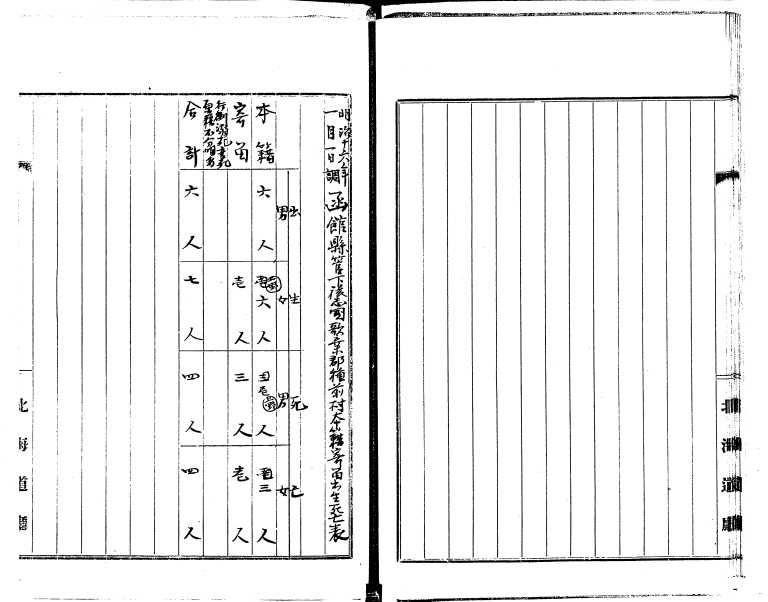 明治十六年
一月一日調
函館縣管下後志國歌棄郡種前村本籍寄留出生死亡表
出生 死亡
男 女 男 女
本籍 六人 六人 壱人 三人
寄留 壱人 三人 壱人
合計 六人 七人 四人 四人
北海道廳
北海道廳